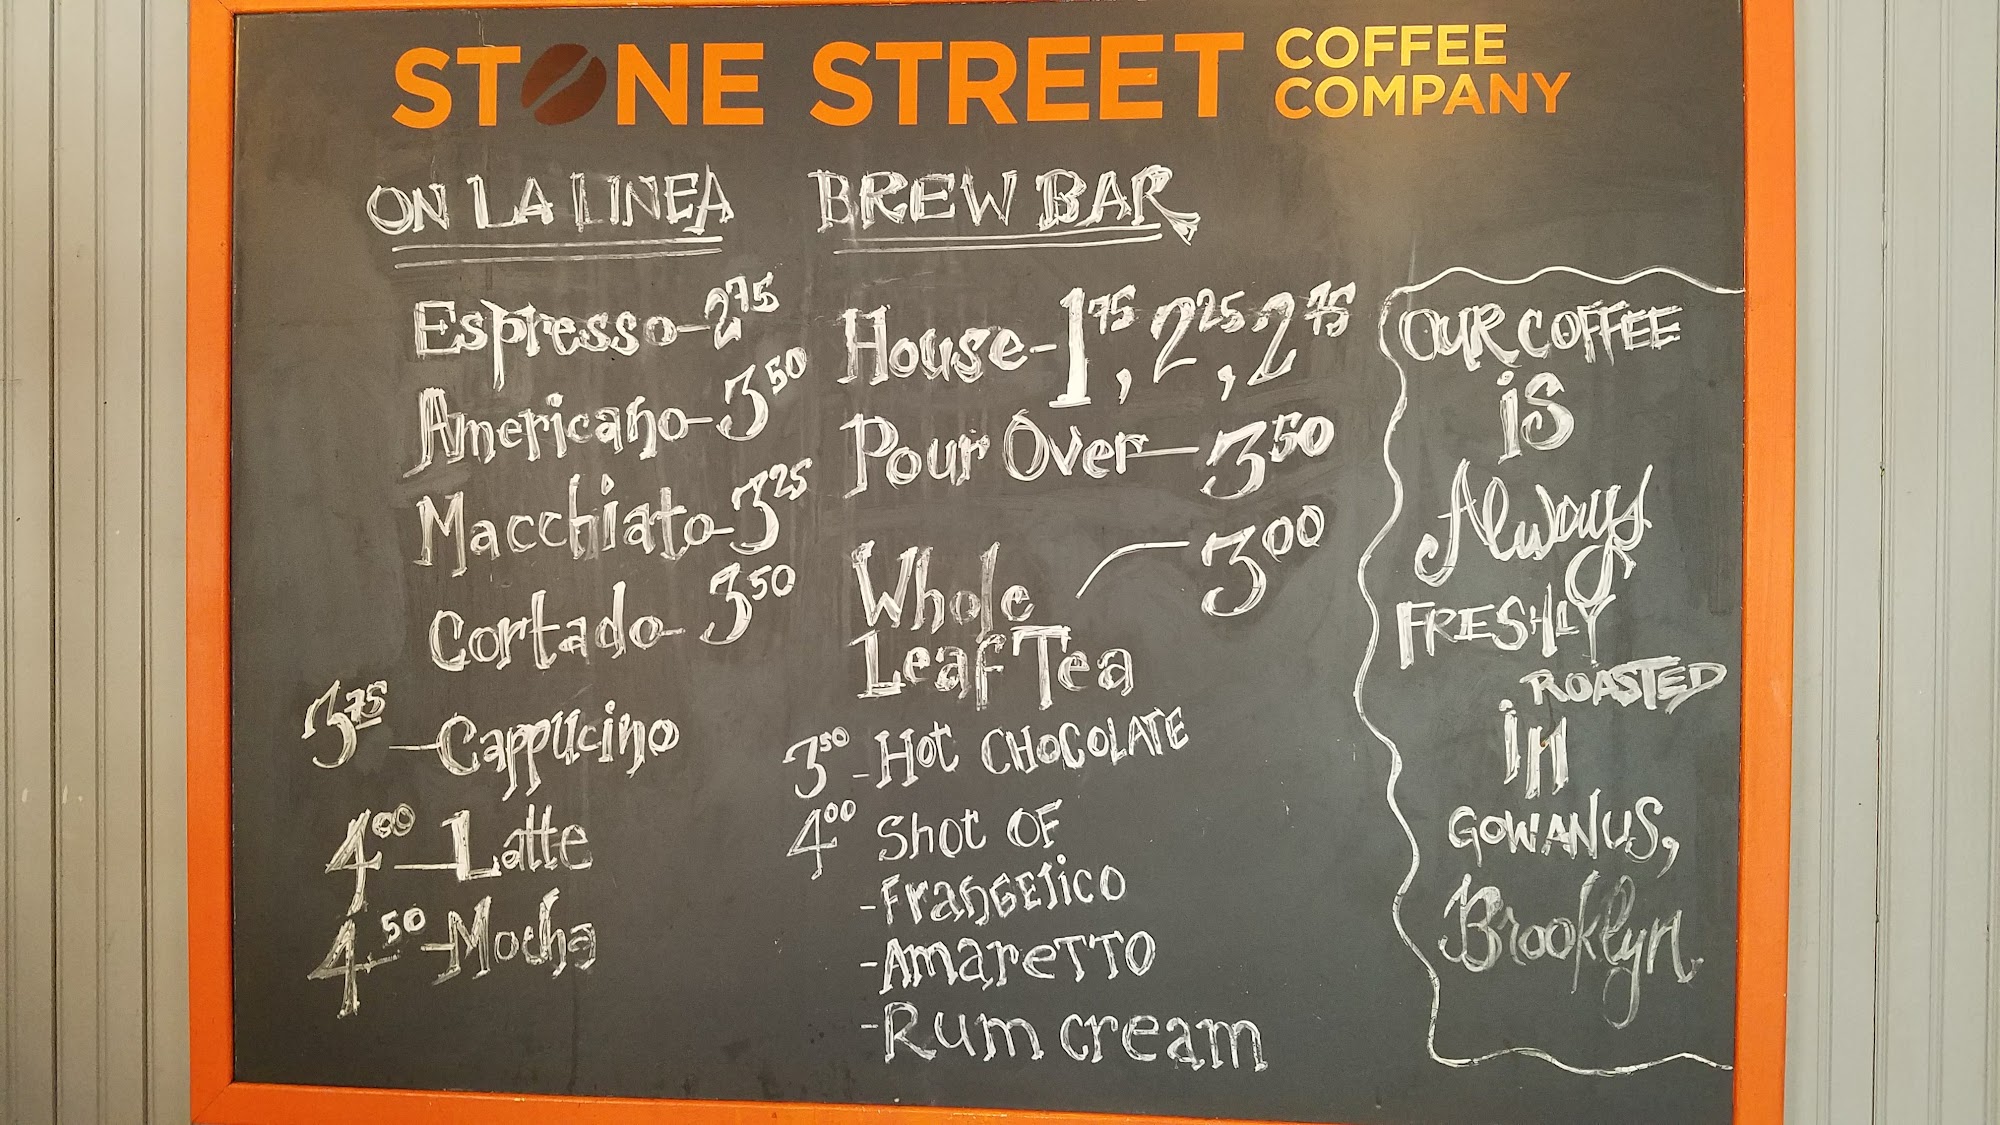 STONE STREET COFFEE COMPANY
ON LA LINEA
Espresso-2.75
Americano-3.50
Macchiato-3.25
Cortado-3.50
3.75-Cappucino
4.00-Latte
4.50-Mocha
BREW BAR
House-1.75, 2.25, 2.75
Pour Over-3.50
Whole
Leaf Tea - 3.00
3.50-Hot CHOCOLATE
4.00 Shot OF
-Frangelico
-AmareTTO
-Rum cream
OUR COFFEE
iS
Always
FRESHLY
ROASTED
in
GOWANUS,
Brooklyn